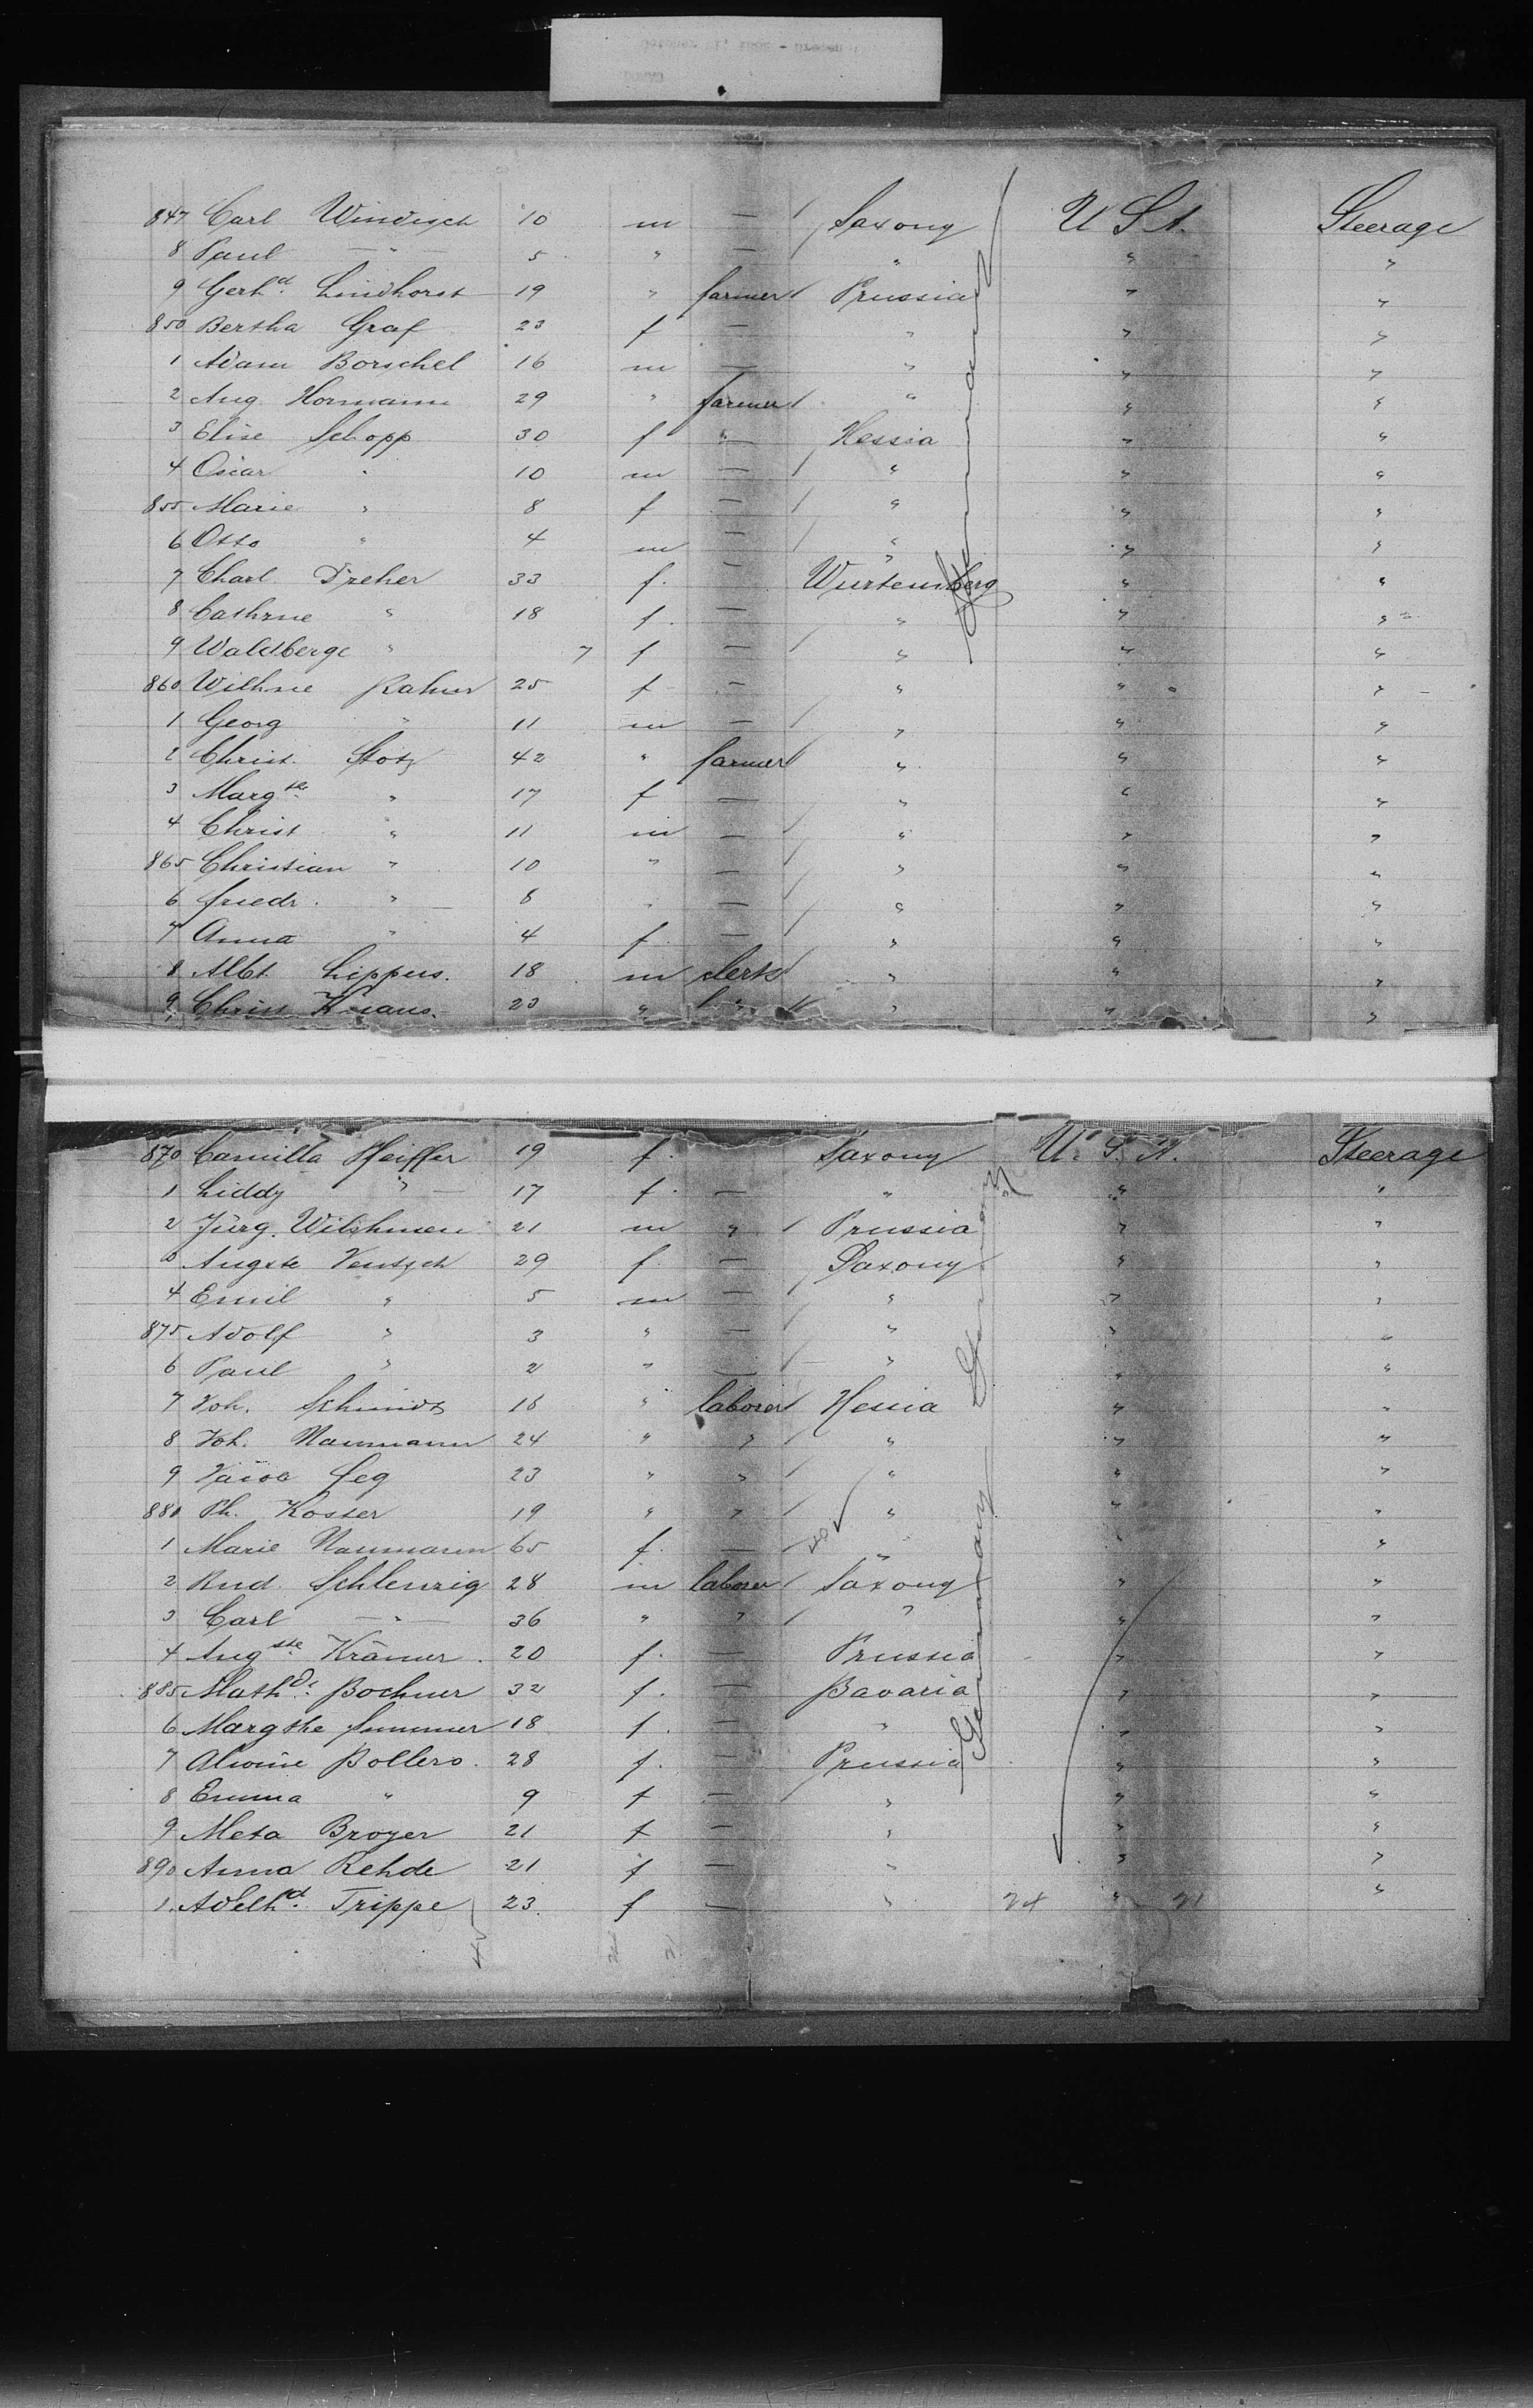 847 Carl Windisch 10 m — Saxony U S A. Steerage
8 Paul — " 5 " — " " "
9 Gerhd. Lindhorst 19 " farmer Prussia " "
850 Bertha Graf 23 f — " " "
1 Adam Borschel 16 m — " " "
2 Aug. Hormann 29 " farmer " " "
3 Elise Schopp 30 f " Hessia " "
4 Oscar " 10 m — " " "
855 Marie " 8 f — " " "
6 Otto " 4 m — " " "
7 Charl. Dreher 33 f. — Wurtemberg " "
8 Cathrne " 18 f. — " " "
9 Waldberge " 7 f — " " "
860 Wilhne 25 f — " " "
1 Georg " 11 m — " " "
2 Christ. Stotz 42 " farmer " " "
3 Margte " 17 f — " " "
4 Christ " 11 m — " " "
865 Christian " 10 " — " " "
6 Friedr. " 8 " — " " "
7 Anna " 4 f — " " "
8 Albt. Lippus. 18 m clerk " " "
9 Christ Knaus. 23 " " " "
Germany
870 Camilla Pfeiffer 19 f. Saxony U. S. A. Steerage
1 Liddy " 17 f. — " " "
2 Jürg. Wilshusen 21 m " Prussia " "
3 Augste 29 f. — Saxony " "
4 Emil " 5 m — " " "
875 Adolf " 3 " — " " "
6 Paul " 2 " — " " "
7 Joh. Schmidt 18 " laborer Hessia " "
8 Joh. Naumann 24 " " " " "
9 23 " " " " "
880 Ph. Kosser 19 " " " " "
1 Marie Naumann 65 f. — " " "
2 Rud. Schlenzig 28 m laborer Saxony " "
3 Carl — " — 36 " " " " "
4 Augste Krämer. 20 f. — Prussia " "
885 Mathde. Bochner 32 f. — Bavaria " "
6 Margthe Summer 18 f. — " " "
7 Alwine Bollers. 28 f. — Prussia " "
8 Emma " 9 f — " " "
9 Meta Broyer 21 f — " " "
890 Anna Rehde 21 f — " " "
1. Adelhd. Trippe 23. f — " 24 " 21 "
Germany
Germany